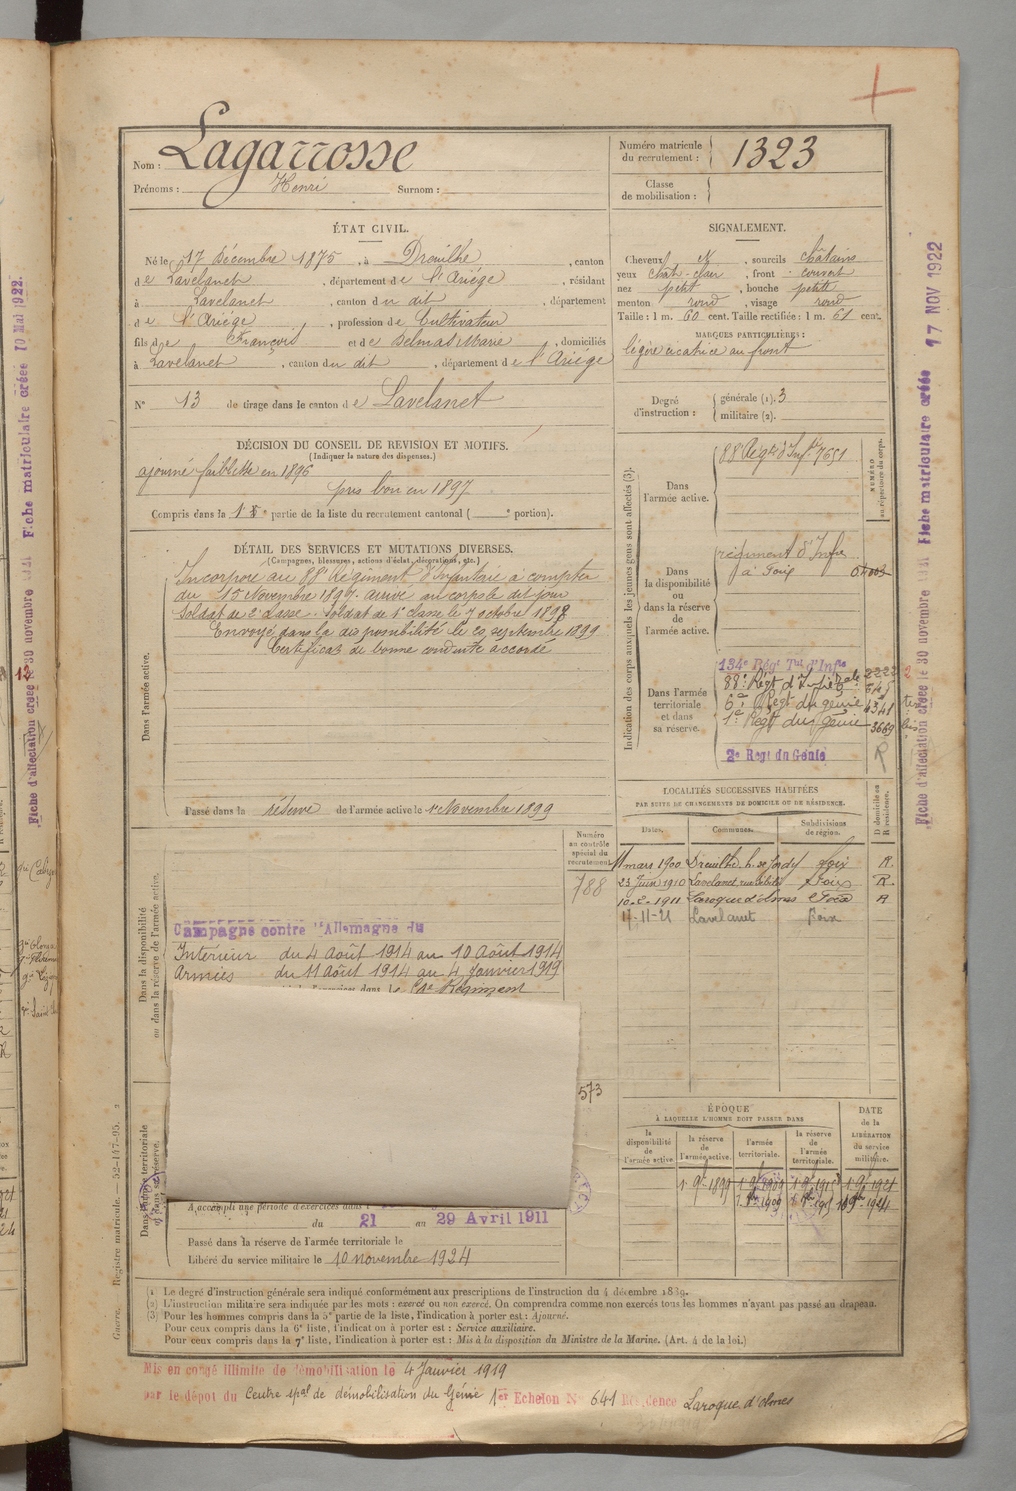 Nom : Lagarrosse
Prénoms : Henri Surnom :
Numéro matricule du recrutement : 1323
Classe de mobilisation :
ÉTAT CIVIL.
Né le 17 Décembre 1875, à Dreuilhe, canton
de Lavelanet, département de l'Ariége, résidant
à Lavelanet, canton du dit, département
de l'Ariége, profession de Cultivateur
fils de François et de Delmas Marie, domiciliés
à Lavelanet, canton du dit, département de l'Ariége
N° 13 de tirage dans le canton de Lavelanet
SIGNALEMENT.
Cheveux N, sourcils châtains
yeux chât-clair, front couvert
nez petit, bouche petite
menton rond, visage rond
Taille : 1 m. 60 cent. Taille rectifiée : 1 m. 61 cent.
MARQUES PARTICULIÈRES :
légère cicatrice au front
Degré d'instruction : générale (1). 3
militaire (2).
DÉCISION DU CONSEIL DE REVISION ET MOTIFS.
(Indiquer la nature des dispenses.)
ajourné faiblesse en 1896
pris bon en 1897
Compris dans la 1e partie de la liste du recrutement cantonal ( e portion).
DÉTAIL DES SERVICES ET MUTATIONS DIVERSES.
(Campagnes, blessures, actions d'éclat, décorations, etc.)
Dans l'armée active.
Incorporé au 88e Régiment d'Infanterie à compter
du 15 Novembre 1897. arrivé au corps le dit jour
Soldat de 2e Classe. Soldat de 1e classe le 7 octobre 1898
Envoyé dans la disponibilité le 20 septembre 1899
Certificat de bonne conduite accordé
Passé dans la réserve de l'armée active le 1er Novembre 1899
Indication des corps auxquels les jeunes gens sont affectés (3).
NUMÉRO au répertoire du corps.
Dans l'armée active.
88e Régt d'Infie 7651
Dans la disponibilité ou dans la réserve de l'armée active.
régiment d'Infie
à Foix 01003
Dans l'armée territoriale et dans sa réserve.
134e Régt Tal d'Infie
88e Régt d'Infie
6e Régt du génie 4348
1er Régt du génie 3669
2e Régt du Génie R
LOCALITÉS SUCCESSIVES HABITÉES
PAR SUITE DE CHANGEMENTS DE DOMICILE OU DE RÉSIDENCE.
Dates. Communes. Subdivisions de région. D domicile ou R résidence.
11 mars 1900 Dreuilhe Foix R.
23 Juin 1910 Lavelanet Foix R.
10-2-1911 Laroque d'olmes Foix
11-11-21 Lavelanet Foix
Numéro au contrôle spécial du recrutement
788
Dans la disponibilité ou dans la réserve de l'armée active.
Campagne contre l'Allemagne du
Intérieur du 4 Août 1914 au 10 Août 1914
Armées du 11 Août 1914 au 4 Janvier 1919
Régiment
573
ÉPOQUE
À LAQUELLE L'HOMME DOIT PASSER DANS
la disponibilité de l'armée active
la réserve de l'armée active.
l'armée territoriale.
la réserve de l'armée territoriale.
DATE de la LIBÉRATION du service militaire.
Dans l'armée territoriale et dans sa réserve.
A accompli une période d'exercices dans l
du 21 au 29 Avril 1911
Passé dans la réserve de l'armée territoriale le
Libéré du service militaire le 10 novembre 1924
(1) Le degré d'instruction générale sera indiqué conformément aux prescriptions de l'instruction du 4 décembre 1889.
(2) L'instruction militaire sera indiquée par les mots : exercé ou non exercé. On comprendra comme non exercés tous les hommes n'ayant pas passé au drapeau.
(3) Pour les hommes compris dans la 5e partie de la liste, l'indication à porter est : Ajourné.
Pour ceux compris dans la 6e liste, l'indication à porter est : Service auxiliaire.
Pour ceux compris dans la 7e liste, l'indication à porter est : Mis à la disposition du Ministre de la Marine. (Art. 4 de la loi.)
Mis en congé illimité de démobilisation le 4 Janvier 1919
par le dépôt du Centre spal de démobilisation du Génie 1er Echelon N° 641 Résidence Laroque d'olmes
Guerre. Registre matricule. — 52-147-95.
Fiche d'affectation créée le 30 novembre 1921 Fiche matriculaire créée 17 NOV 1922
Fiche d'affectation créée le 30 novembre 1921 Fiche matriculaire créée 10 Mai 1922.